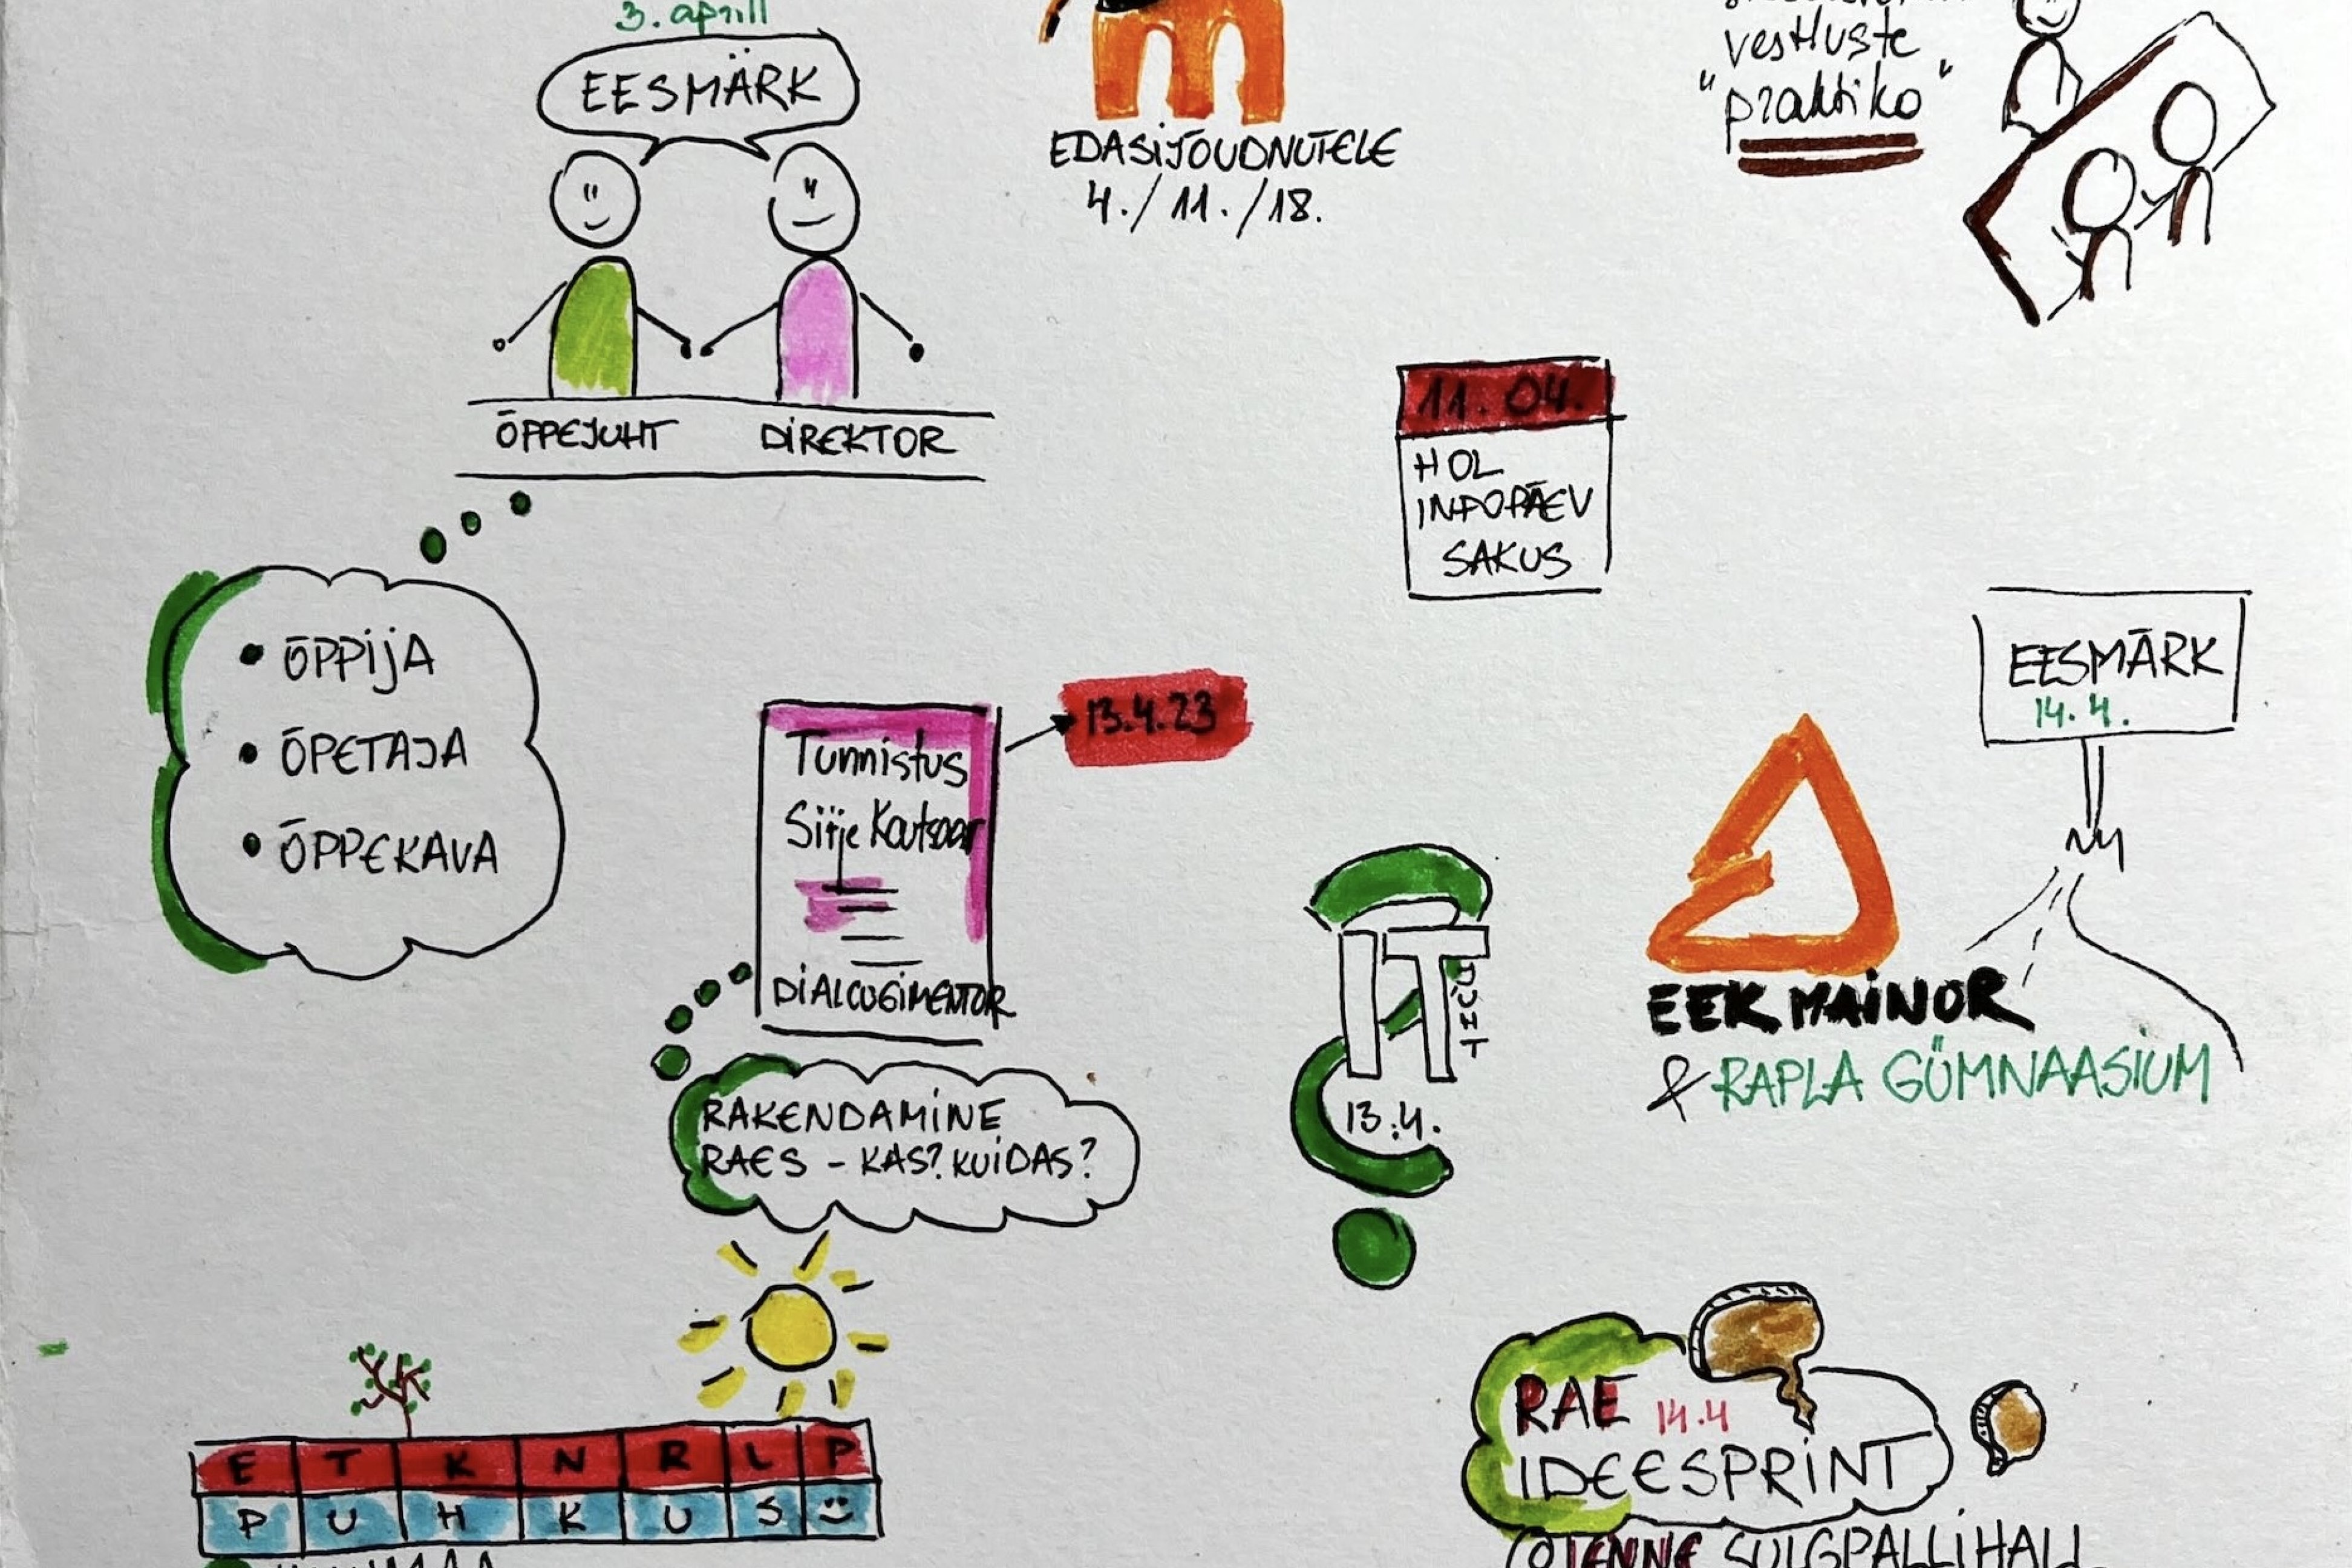 3. aprill
EESMÄRK
ÕPPEJUHT DIREKTOR
• ÕPPIJA
• ÕPETAJA
• ÕPPEKAVA
EDASIJÕUDNUTELE
4./11./18.
vestluste
"praktiko"
11.04.
HOL
INFOPÄEV
SAKUS
13.4.23
Tunnistus
Sirje Kautsaar
DIALOOGIMENTOR
RAKENDAMINE
RAES - KAS? KUIDAS?
IT
JUHT
13.4.
EESMÄRK
14.4.
EEK MAINOR
& RAPLA GÜMNAASIUM
E T K N R L P
P U H K U S
RAE 14.4
IDEESPRINT
@JENNE SULGPALLIHALL